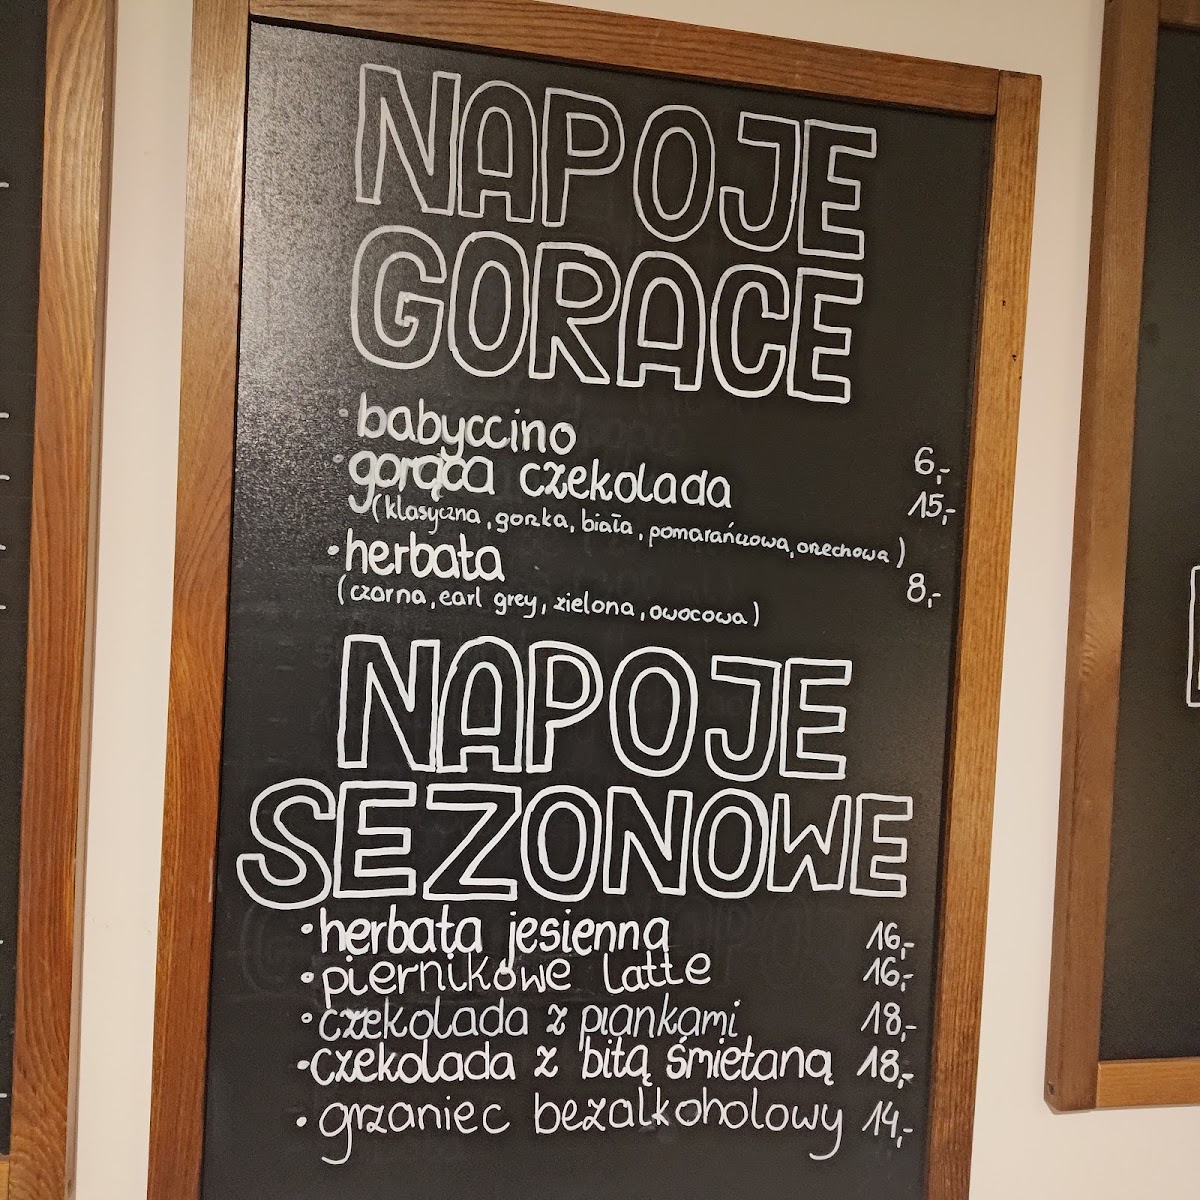 NAPOJE
GORACE
• babyccino 6,-
• gorąca czekolada 15,-
(klasyczna, gorzka, biała, pomarańczowa, orzechowa)
• herbata 8,-
(czarna, earl grey, zielona, owocowa)
NAPOJE
SEZONOWE
• herbata jesienna 16,-
• piernikowe latte 16,-
• czekolada z piankami 18,-
• czekolada z bitą śmietaną 18,-
• grzaniec bezalkoholowy 14,-